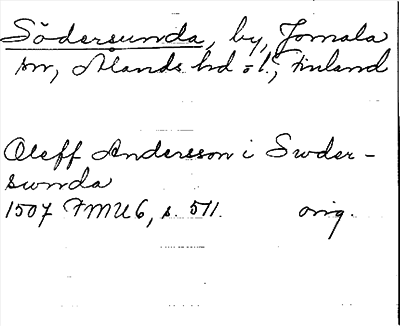 Södersunda, by, Jomala
sn, Ålands hd o l., Finland
Oleff Andersson i Swder-
swnda
1507 FMU 6, s. 511. orig.